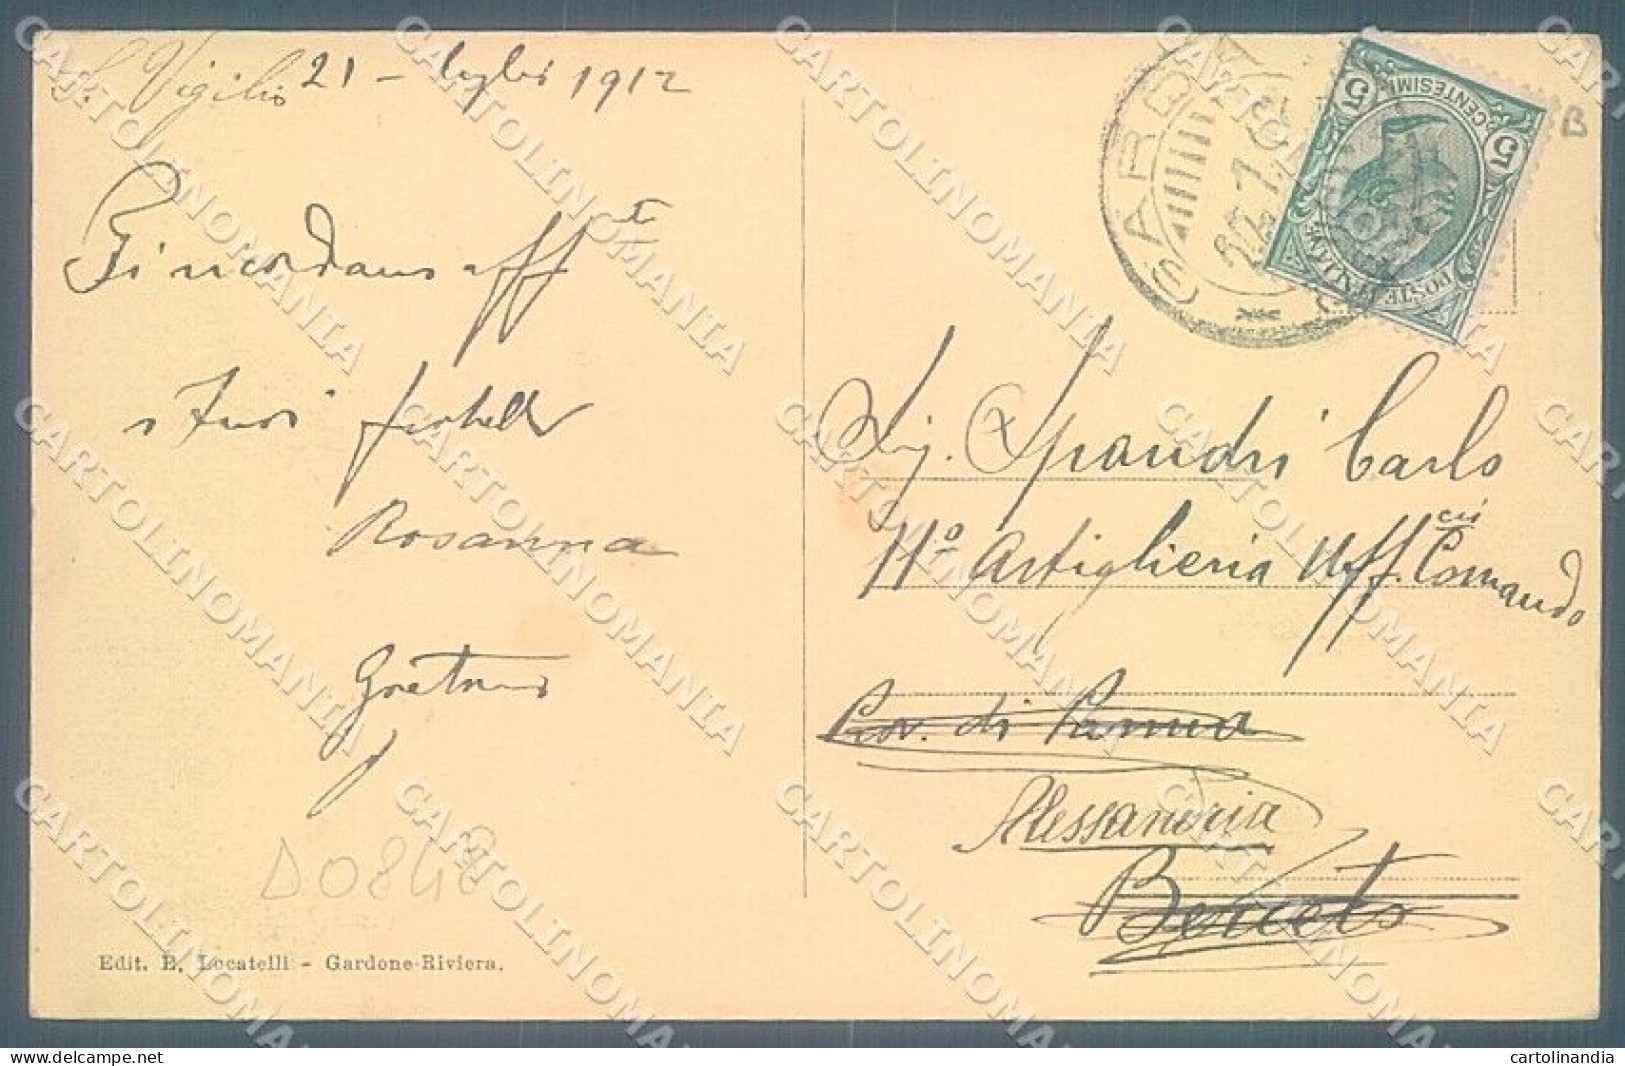 S. Vigilio 21 - luglio 1912
Ti ricordano aff.te
i tuoi fratelli
Rosanna
Gaetano
D0848
Edit. E. Locatelli - Gardone-Riviera.
SARDA
POSTE ITALIANE
CENTESIMI
5 5
B
Sig. Spandri Carlo
11º Artiglieria Uff.cii Comando
Prov. di Parma
Alessandria
Berceto
CARTOLINOMANIA
cartolinomania.it by mail@cartolinomania.com
cartolinandia